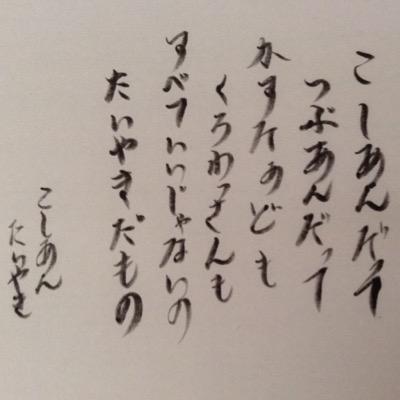 こしあんだって
つぶあんだって
かすたあども
くろわっさんも
すべていいじゃないの
たいやきだもの
こしあん
たいやき